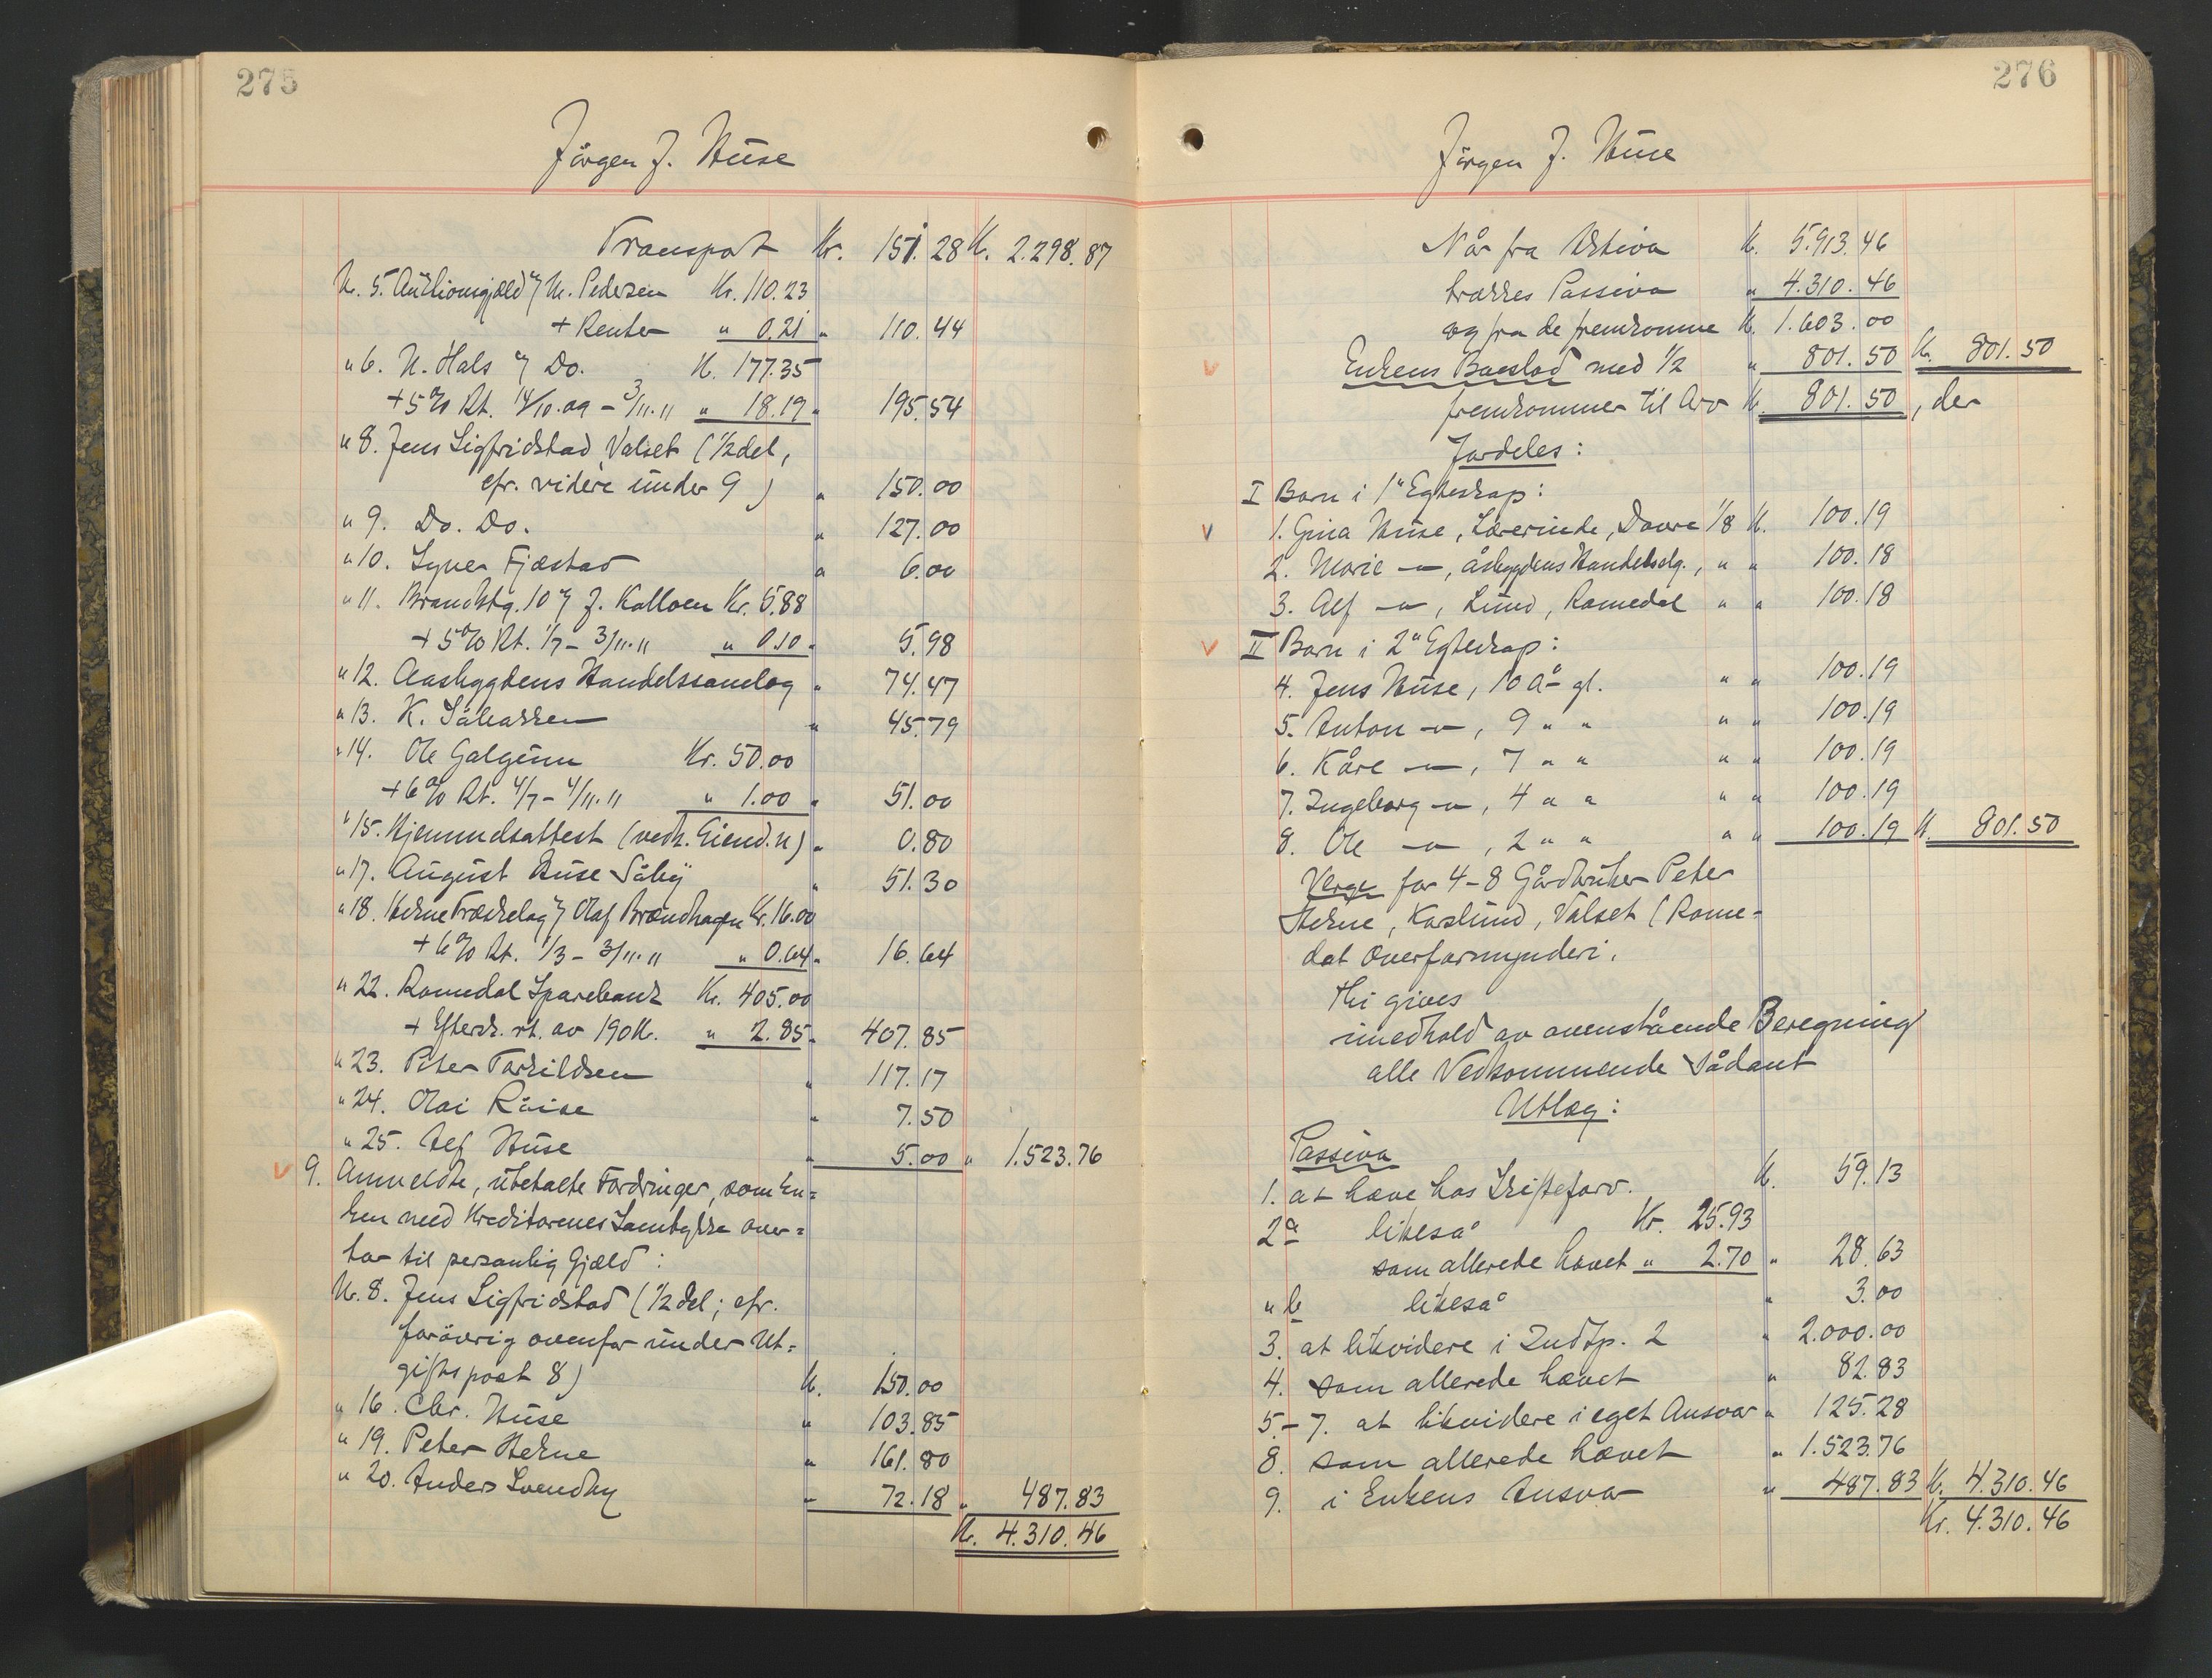 275
Jörgen J. Huse
Transport Kr. 151.28 Kr. 2.298.87
Nr. 5. Auktionsgjæld M. Pedersen Kr. 110.23
+ Renter " 0.21 " 110.44
" 6. N. Hals Do. Kr. 177.35
+ 5% Rt. 14/10.09 - 3/11.11 " 18.19 " 195.54
" 8. Jens Sigfridstad Valset (1/2 del,
cfr. videre under 9) " 150.00
" 9. Do. Do. " 127.00
" 10. Syver Fjæstad " 6.00
" 11. Brandktg. 10 J. Kalloen Kr. 5.88
+ 5% Rt. 1/7 - 3/11.11 " 0.10 " 5.98
" 12. Aasbygdens Handelssamlag " 74.47
" 13. K. Såbakken " 45.79
" 14. Ole Galgum Kr. 50.00
+ 6% Rt. 4/7 - 4/11.11 " 1.00 " 51.00
" 15. Hjemmelsattest (vedk. Eiend.n) " 0.80
" 17. August Huse Såby " 51.30
" 18. Hekne Træskelag Olaf Brændhagen Kr. 16.00
+ 6% Rt. 1/3 - 3/11.11 " 0.64 " 16.64
" 22. Romedal Sparebank Kr. 405.00
+ Eftersk. rt. av 190 Kr. " 2.85 " 407.85
" 23. Peter Torkildsen " 117.17
" 24. Olai Råise " 7.50
" 25. Alf Huse " 5.00 " 1.523.76
9. Anmeldte, ubetalte Fordringer, som En=
ken med Kreditorenes Samtykke over=
tar til personlig Gjæld:
Nr. 8. Jens Sigfridstad (1/2 del; cfr.
forövrig ovenfor under Ut=
giftspost 8) Kr. 150.00
" 16. Chr. Huse " 103.85
" 19. Peter Hekne " 161.80
" 20. Anders Svendby " 72.18 " 487.83
Kr. 4.310.46
276
Jörgen J. Huse
Når fra Aktiva Kr. 5.913.46
trækkes Passiva " 4.310.46
og fra de fremkomne Kr. 1.603.00
Enkens Boeslod med 1/2 " 801.50 Kr. 801.50
fremkommer til Arv Kr. 801.50, der
Fordeles:
I Barn i 1" Egteskap:
1. Gina Huse, Lærerinde, Dovre 1/8 Kr. 100.19
2. Marie —"—, Åsbygdens Handelslg., " " 100.18
3. Alf —"—, Lund, Romedal " " 100.18
II Barn i 2" Egteskap:
4. Jens Huse, 10 År gl. " " 100.19
5. Anton —"—, 9 " " " " 100.19
6. Kåre —"—, 7 " " " " 100.19
7. Ingeborg —"—, 4 " " " " 100.19
8. Ole —"—, 2 " " " " 100.19 Kr. 801.50
Verge for 4-8 Gårdbruker Peter
Hekne, Kaslund, Valset (Rome-
dal Overformynderi.
Thi gives
i medhold av ovenstående Beregning
alle Vedkommende sådant
Utlæg:
Passiva
1. at hæve hos Skifteforv. Kr. 59.13
2a likeså Kr. 25.93
som allerede hævet " 2.70 " 28.63
" b likeså " 3.00
3. at likvidere i Indtp. 2 " 2.000.00
4. som allerede hævet " 82.83
5-7. at likvidere i eget Ansvar " 125.28
8. som allerede hævet " 1.523.76
9. i Enkens Ansvar " 487.83 Kr. 4.310.46
Kr. 4.310.46